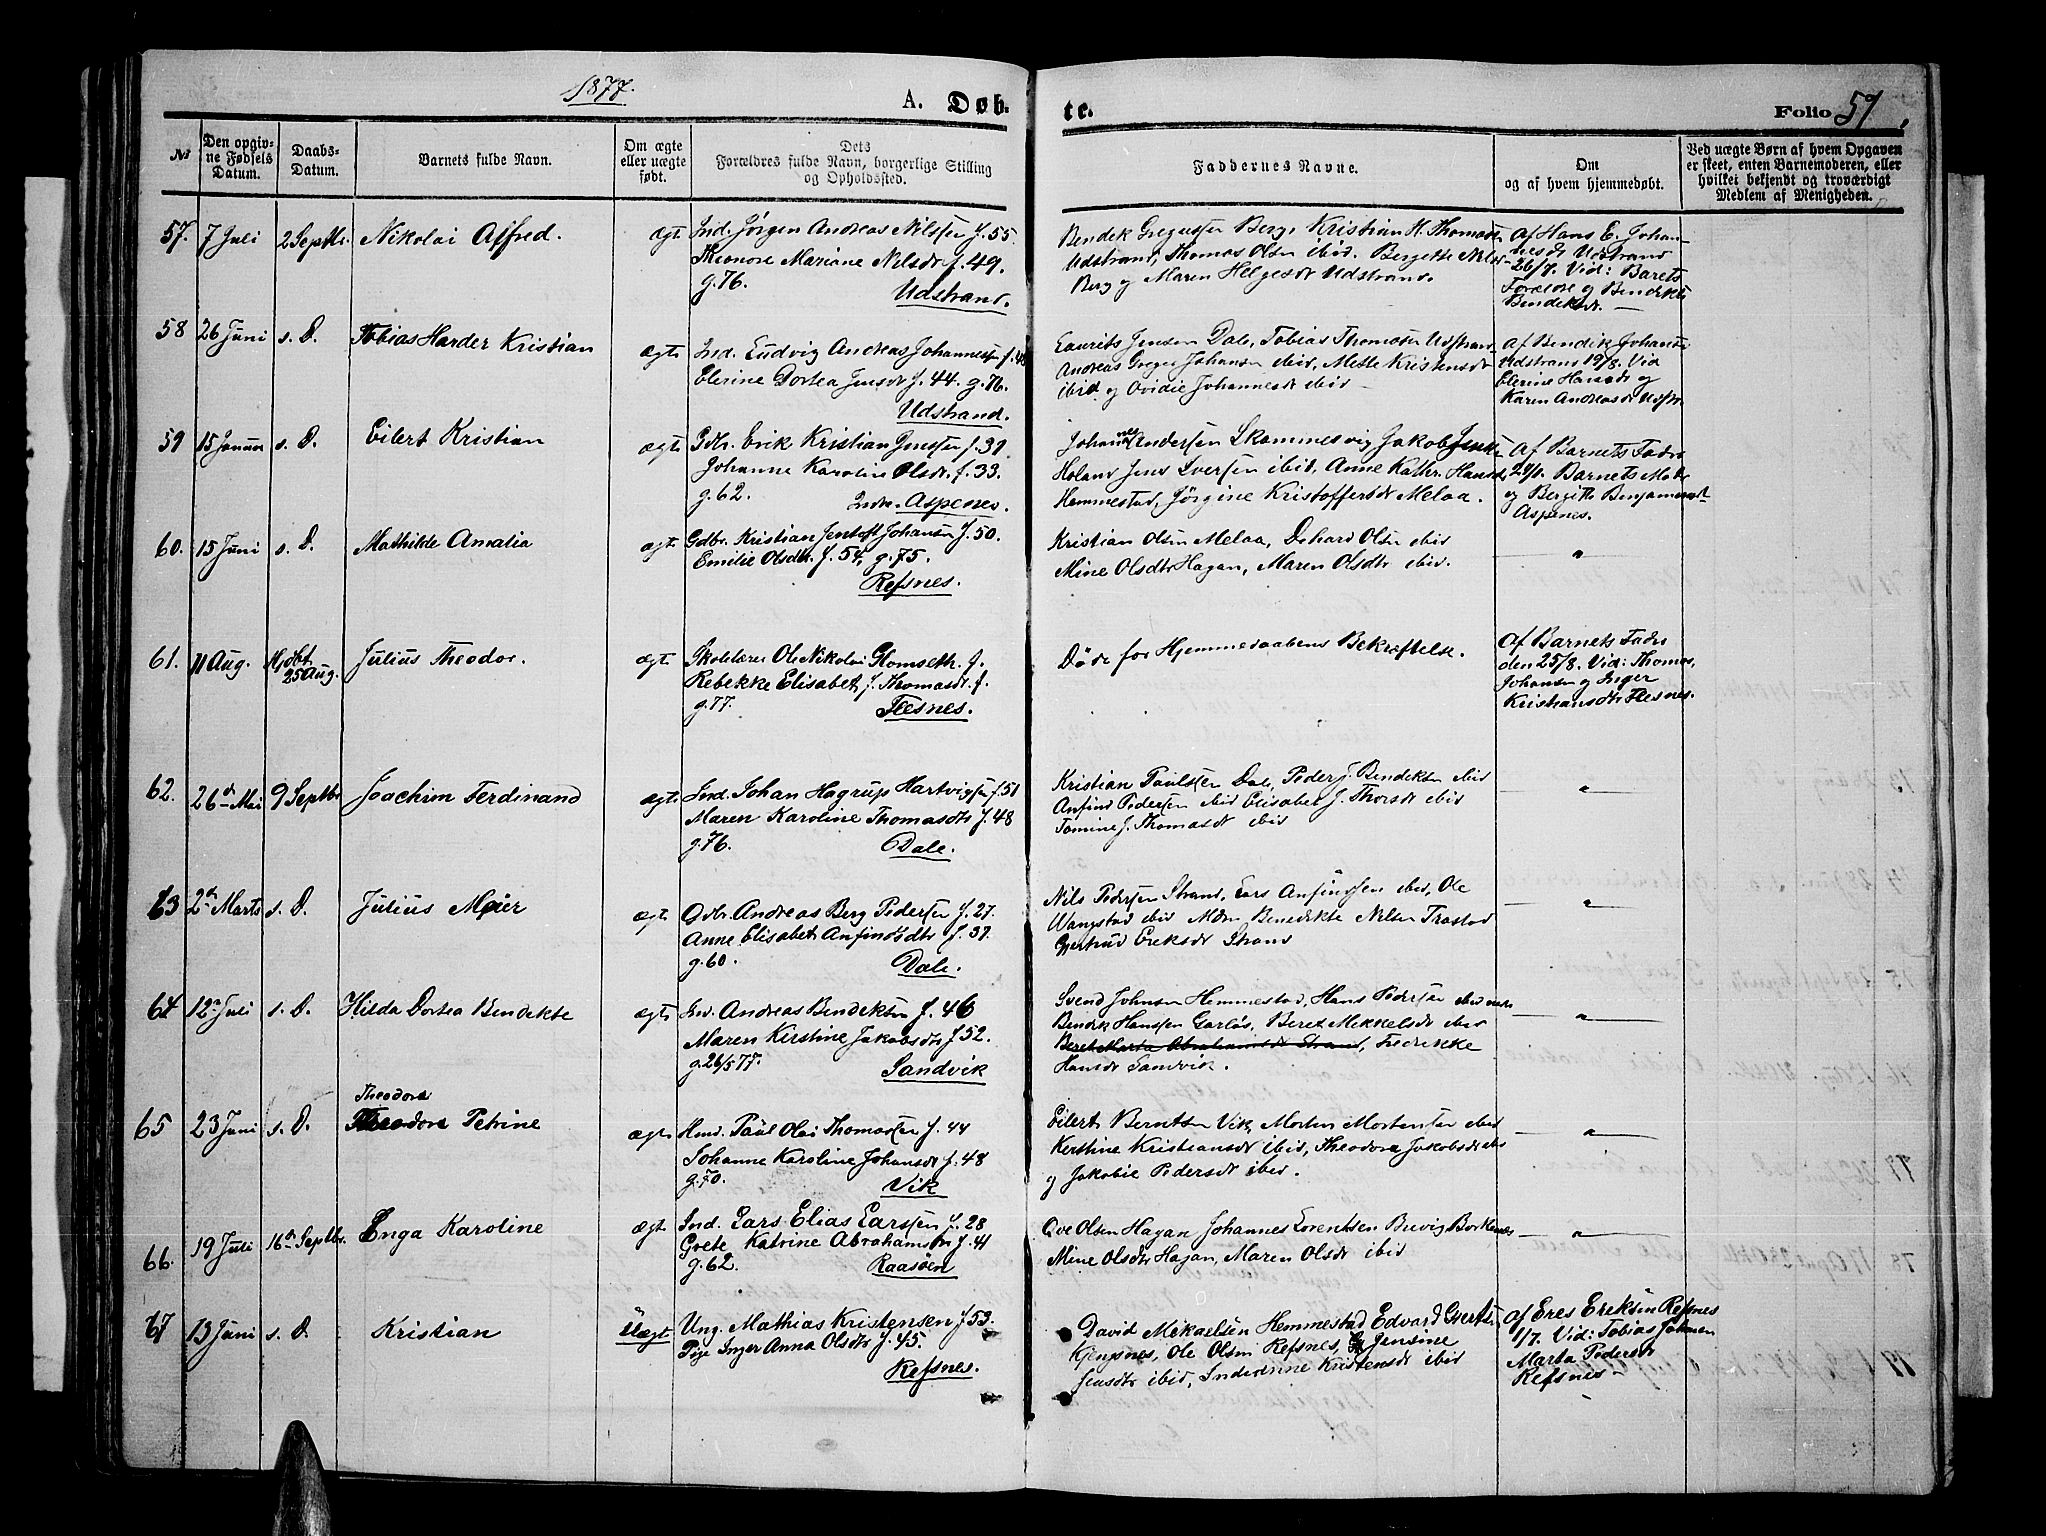 1877.
A. Døb-
te.
Folio 59.
№
Den opgiv-
ne Fødsels
Datum.
Daabs-
Datum.
Barnets fulde Navn.
Om ægte
eller uægte
født.
Dets
Forældres fulde Navn, borgerlige Stilling
og Opholdssted.
Faddernes Navne.
Om
og af hvem hjemmedøbt.
Ved uægte Børn af hvem Opgaven
er skeet, enten Barnemoderen, eller
hvilket bekjendt og troværdigt
Medlem af Menigheden.
57. 7 Juli 2 Septbr. Nikolai Alfred. ægt.
Ind. Jörgen Andreas Nilssen f. 55.
Eleonore Mariane Nilsdr f. 49.
g. 76.
Udstrand.
Bendik Gregussen Berg, Kristian H. Thomass
Udstrand, Thomas Olsen ibid. Bergette Nilsd
Berg og Maren Helgesdr Udstrand.
Af Hans E. Johan-
nesdr Udstrand
26/7. Vid: Barets
Forældre og Bendikte
Bendiksdr. —
58 26 Juni s. D. Tobias Harder Kristian ægte
Ind. Ludvig Andreas Johannessen f. 48
Elerine Dortea Jensdr f. 44. g. 76.
Udstrand.
Laurits Jensen Dale, Tobias Thomasen Udstrand
Andreas Greger Johansen ibid, Mette Kristensdr
ibid og Ovidie Johannesdr ibid —
Af Bendik Johans
Udstrand 19/8. Vid
Elerine Hansdr og
Karen Andreasdr Udstr.
59 15 Januar s. D. Eilert Kristian ægte
Gdbr. Erik Kristian Jenssen f. 39
Johanne Karoline Olsdr. f. 33.
g. 62.
Indre. Aspenes.
Johannes Andersen Skammesvig Jakob
Holand Jens Iversen ibid, Anne Kathr. Hansdr
Hemmestad, Jörgine Kristoffersdr Melaa.
Af Barnets Fader
Barnets Moder
og Bergitte Benjaminsdr
Aspenes.
60. 15 Juni s. D. Mathilde Amalia ægt
Gdbr. Kristian Jentoft Johansen f. 50.
Emilie Olsdtr. f. 54, g. 75.
Refsnes.
Kristian Olsen Melaa, Dehard Olsen ibid
Mine Olsdtr Hagan, Maren Olsdtr ibid.
— " —
61. 11 Aug. Hjdbt.
25 Aug. Julius Theodor. ægt.
Skolelærer Ole Nikolai Glomseth. f.
Rebekke Elisabet f. Thomasdr. f.
g. 77.
Flesnes.
Döde for Hjemmedaabens Bekræftelse.
Af Barnets Fader
den 25/8. Vid: Thomas
Johansen og Inger
Kristiansdtr Flesnes.
62. 26 Mai 9 Septbr Joachim Ferdinand ægte
Ind. Johan Hagrup Hartvigsen f. 51
Maren Karoline Thomasdtr f. 48
g. 76.
Dale.
Kristian Paulssen Dale, Peder J. Bendiktsn ibid
Anfind Pedersen ibid Elisabet J. Thorsdr ibid
Tomine J. Thomasdr ibid
— " —
63 2 Marts s. D. Julius Meier ægt
Gdbr. Andreas Berg Pedersen f. 27.
Anne Elisabet Anfindsdtr f. 37.
g. 60.
Dale.
Nils Pedersen Strand, Lars Anfindsen ibid, Ole
Wangstad ibid Mdm. Benedikte Nilsen Trastad
Gjertrud Eriksdr Strand
— " —
64 12 Juli s. D. Hilda Dortea Bendikte ægt
Ind. Andreas Bendiktsen f. 46
Maren Kirstine Jakobsdtr f 52.
g. 26/5 77.
Sandvik
Svend Johnsen Hemmestad, Hans Pedersen ibid
Bendik Hanssen Garlös, Beret Mikkelsdr ibid
Beret Marta Abrahamsdr Strand, Frederikke
Hansdr Sandvik.
— " —
65 23 Juni s. D. Theodora
Theodora Petrine ægt
Hmd. Paul Olai Thomassen f. 44
Johanne Karoline Johansdr f. 48
g. 70.
Vik
Eilert Berntsen Vik, Morten Mortensen ibid
Kerstine Kristiansdr ibid, Theodora Jakobsdr ibid
og Jakobie Pedersdr ibid.
— " —
66. 19 Juli 16 Septbr. Enga Karoline ægt
Ind. Lars Elias Larssen f. 28
Grete Katrine Abrahamsdtr f. 41
g. 62.
Raasöen
Ove Olsen Hagan Johannes Lorentsen Buvig Borkenæs
Mine Olsdtr Hagan, Maren Olsdr ibid
— " —
67 13 Juni s. D. Kristian Uægt
Ung. Mathias Kristensen f 53.
Pige Inger Anna Olsdtr f. 45.
Refsnes.
David Mikaelsen Hemmestad Edvard Evertsen
Kjengsnes, Ole Olsen Refsnes, Jensine
Jensdtr ibid, Inderine Kristensdr ibid
Af Eres Eriksen Refsnes
1/7. Vid: Tobias Johnsen
Marta Pedersdr
Refsnes —